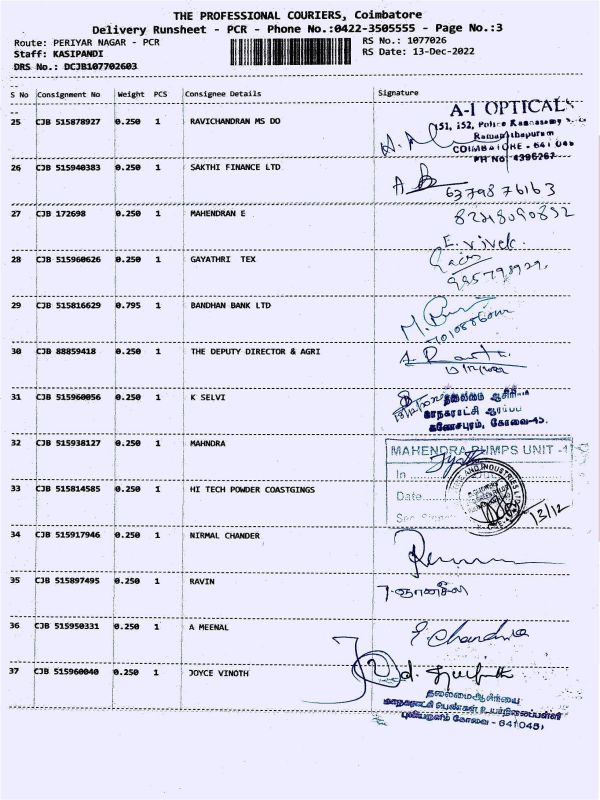 THE PROFESSIONAL COURIERS, Coimbatore
Delivery Runsheet - PCR - Phone No.:0422-3505555 - Page No.:3
Route: PERIYAR NAGAR - PCR
RS No.: 1077026
Staff: KASIPANDI
RS Date: 13-Dec-2022
DRS No.: DCJB107702603
S No Consignment No Weight PCS Consignee Details Signature
25 CJB 515878927 0.250 1 RAVICHANDRAN MS DO
A-1 OPTICALS
151, 152, Police Kandasamy
Ramanathapuram
COIMBATORE - 641 045
PH No 4396267
26 CJB 515940383 0.250 1 SAKTHI FINANCE LTD
6379876163
27 CJB 172698 0.250 1 MAHENDRAN E
E. Vivek
28 CJB 515960626 0.250 1 GAYATHRI TEX
29 CJB 515816629 0.795 1 BANDHAN BANK LTD
30 CJB 88859418 0.250 1 THE DEPUTY DIRECTOR & AGRI
31 CJB 515960056 0.250 1 K SELVI
கணேசபுரம், கோவை-45.
32 CJB 515938127 0.250 1 MAHNDRA
MAHENDRA PUMPS UNIT -1
In
Date
33 CJB 515814585 0.250 1 HI TECH POWDER COASTGINGS
13/12
34 CJB 515917946 0.250 1 NIRMAL CHANDER
35 CJB 515897495 0.250 1 RAVIN
36 CJB 515950331 0.250 1 A MEENAL
E. Chandra
37 CJB 515960040 0.250 1 JOYCE VINOTH
தலைமை ஆசிரியை
மாநகராட்சி பெண்கள் உயர்நிலைப்பள்ளி
கோவை - 641045